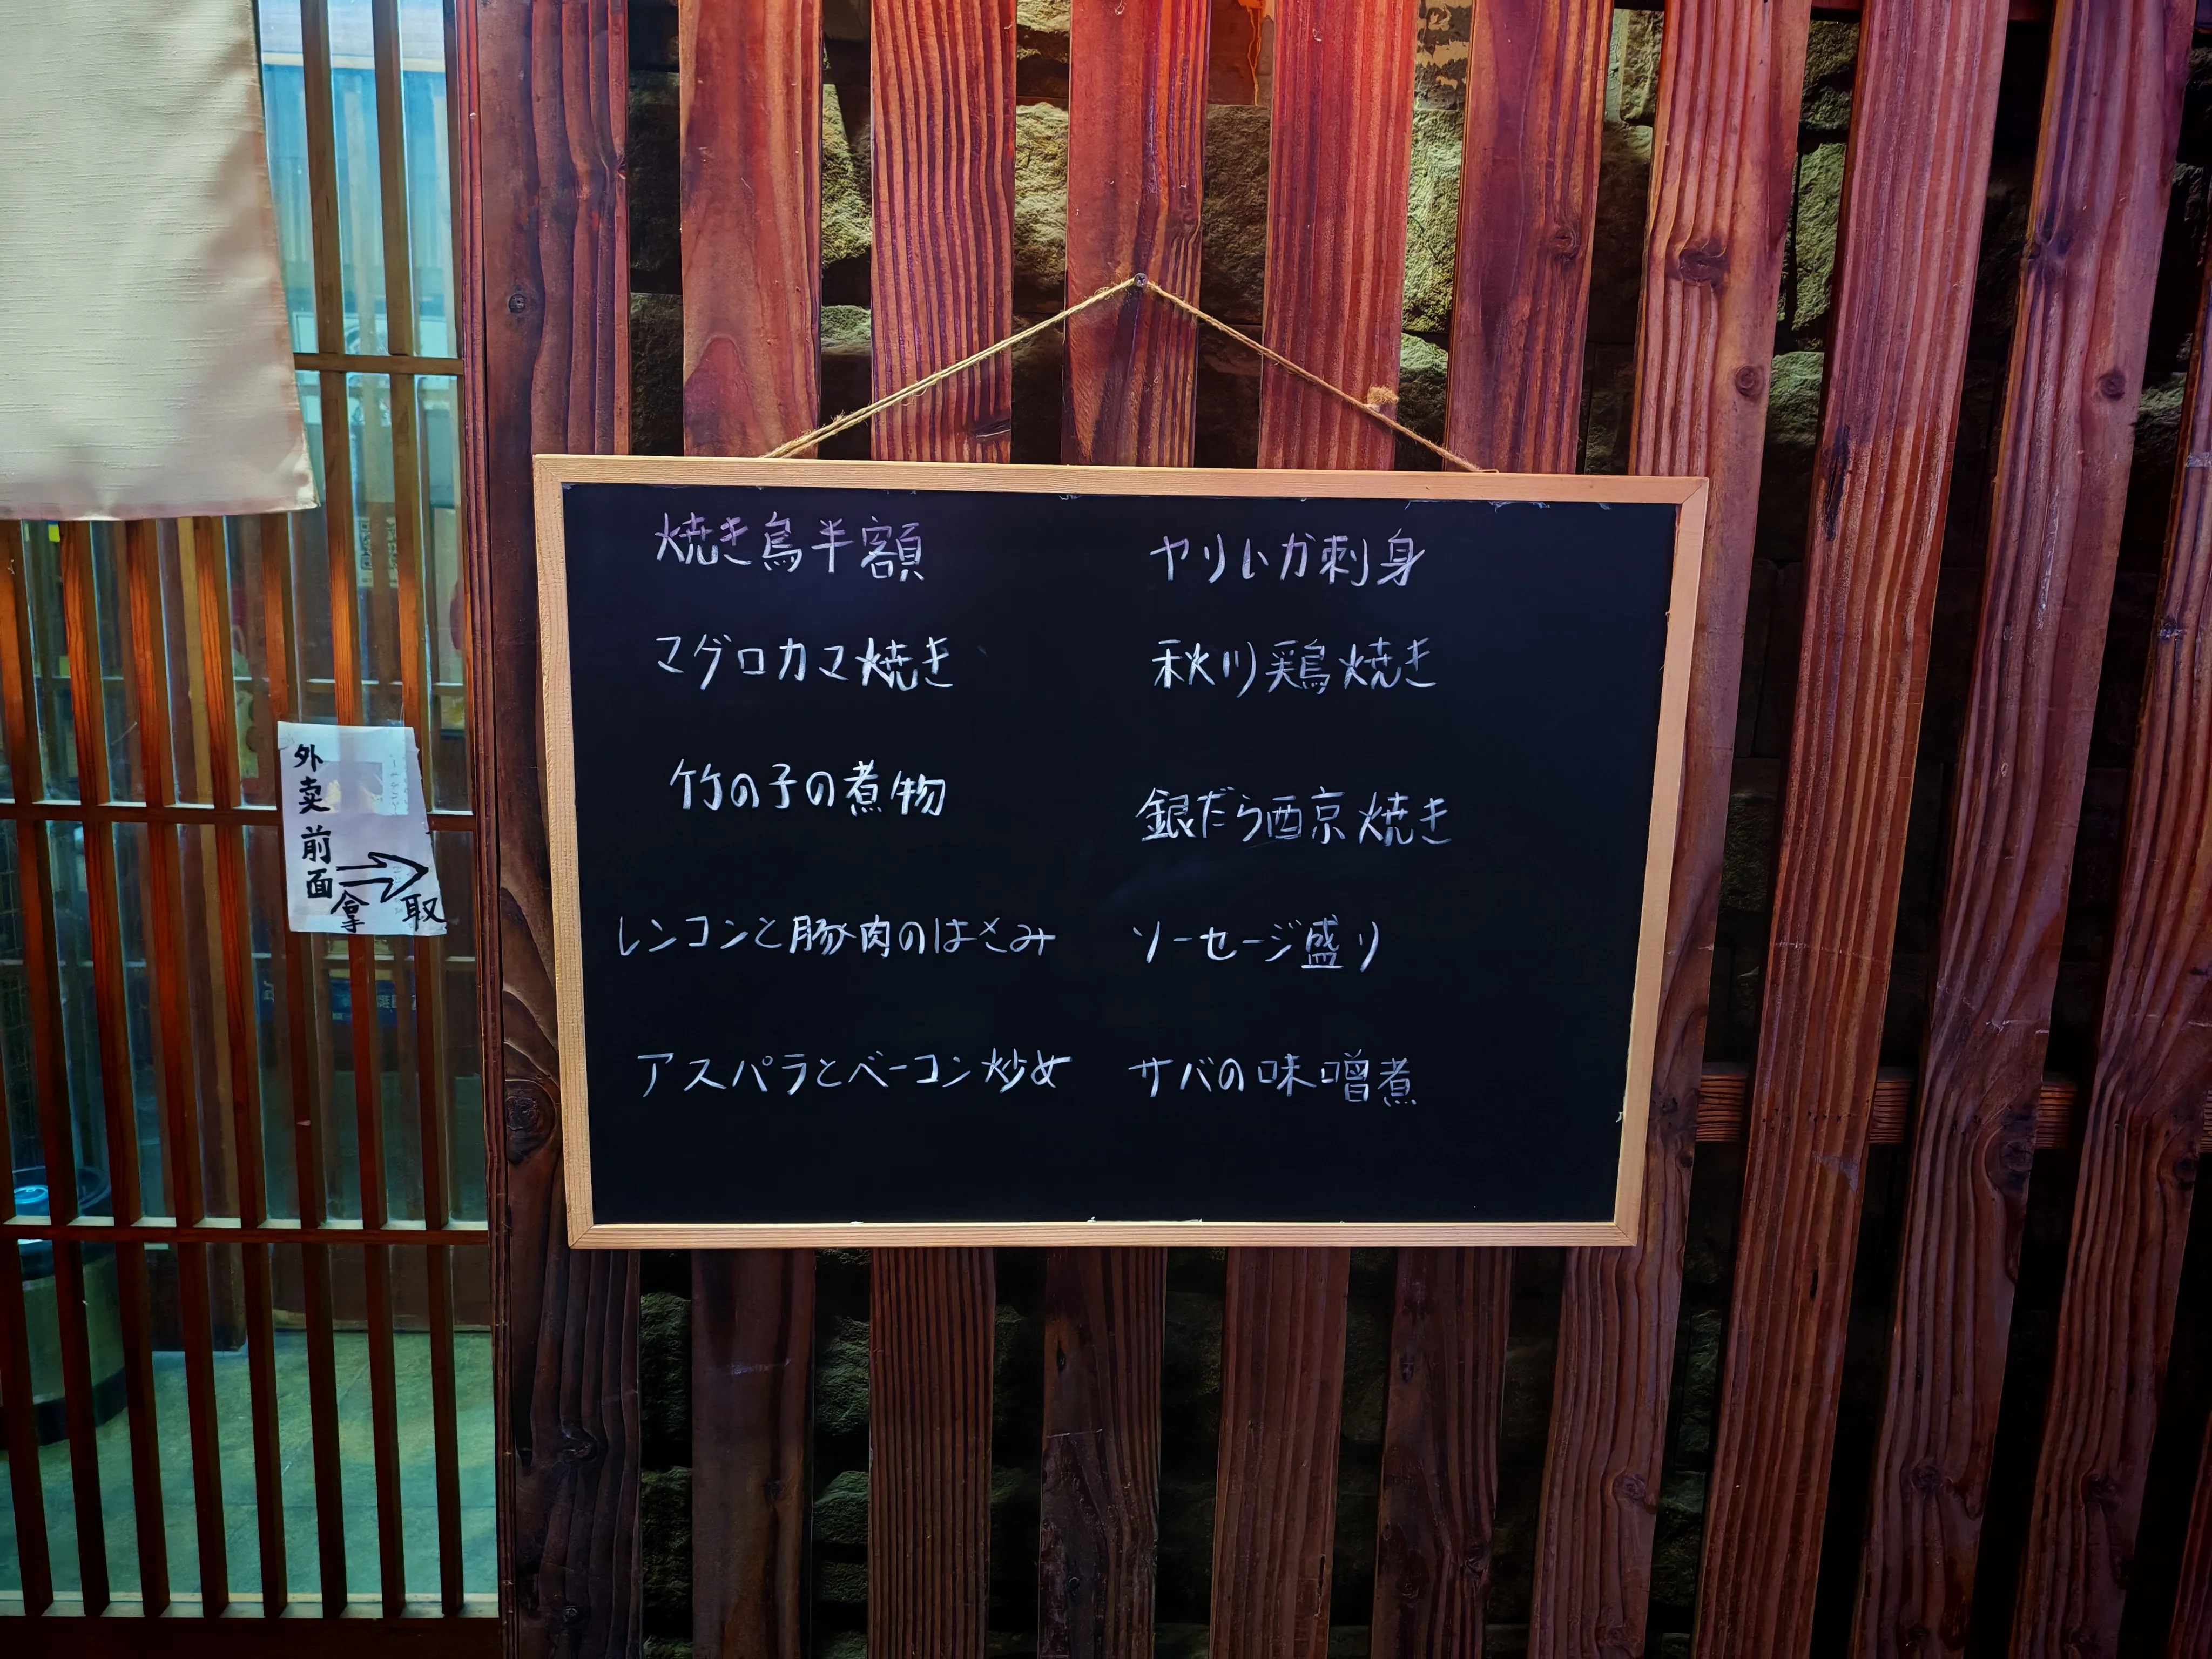 焼き鳥半額
マグロカマ焼き
竹の子の煮物
レンコンと豚肉のはさみ
アスパラとベーコン炒め
ヤリいカ刺身
秋川鶏焼き
銀だら西京焼き
ソーセージ盛り
サバの味噌煮
外卖前面
拿取